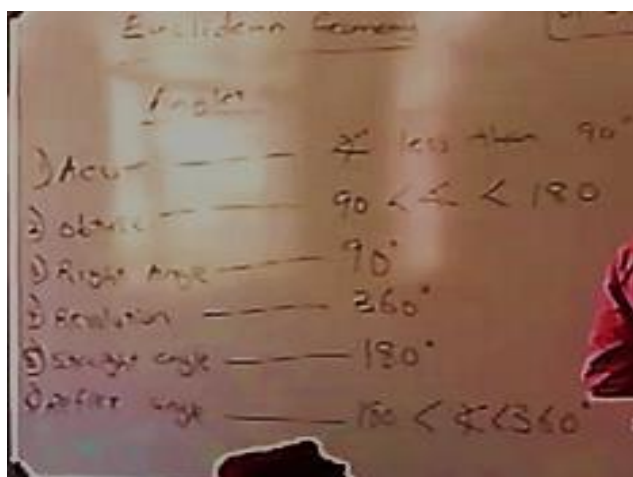 Euclidean Geometry
Angles
1) Acu — ∡ less than 90°
2) obtuse — 90 < ∡ < 180
3) Right Angle — 90°
4) Revolution — 360°
5) Straight angle — 180°
6) Reflex angle — 180 < ∡ < 360°